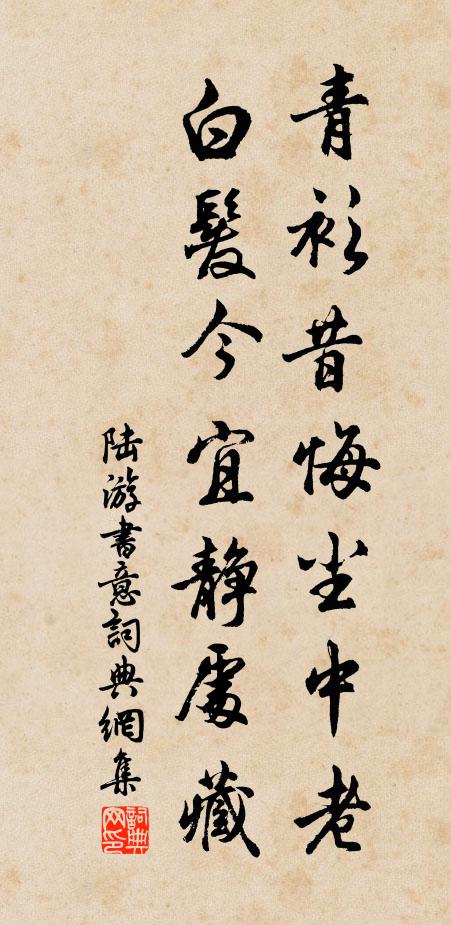 青衫昔悔尘中老
白髮今宜静處藏
陆游書意詞典網集
詞典网印